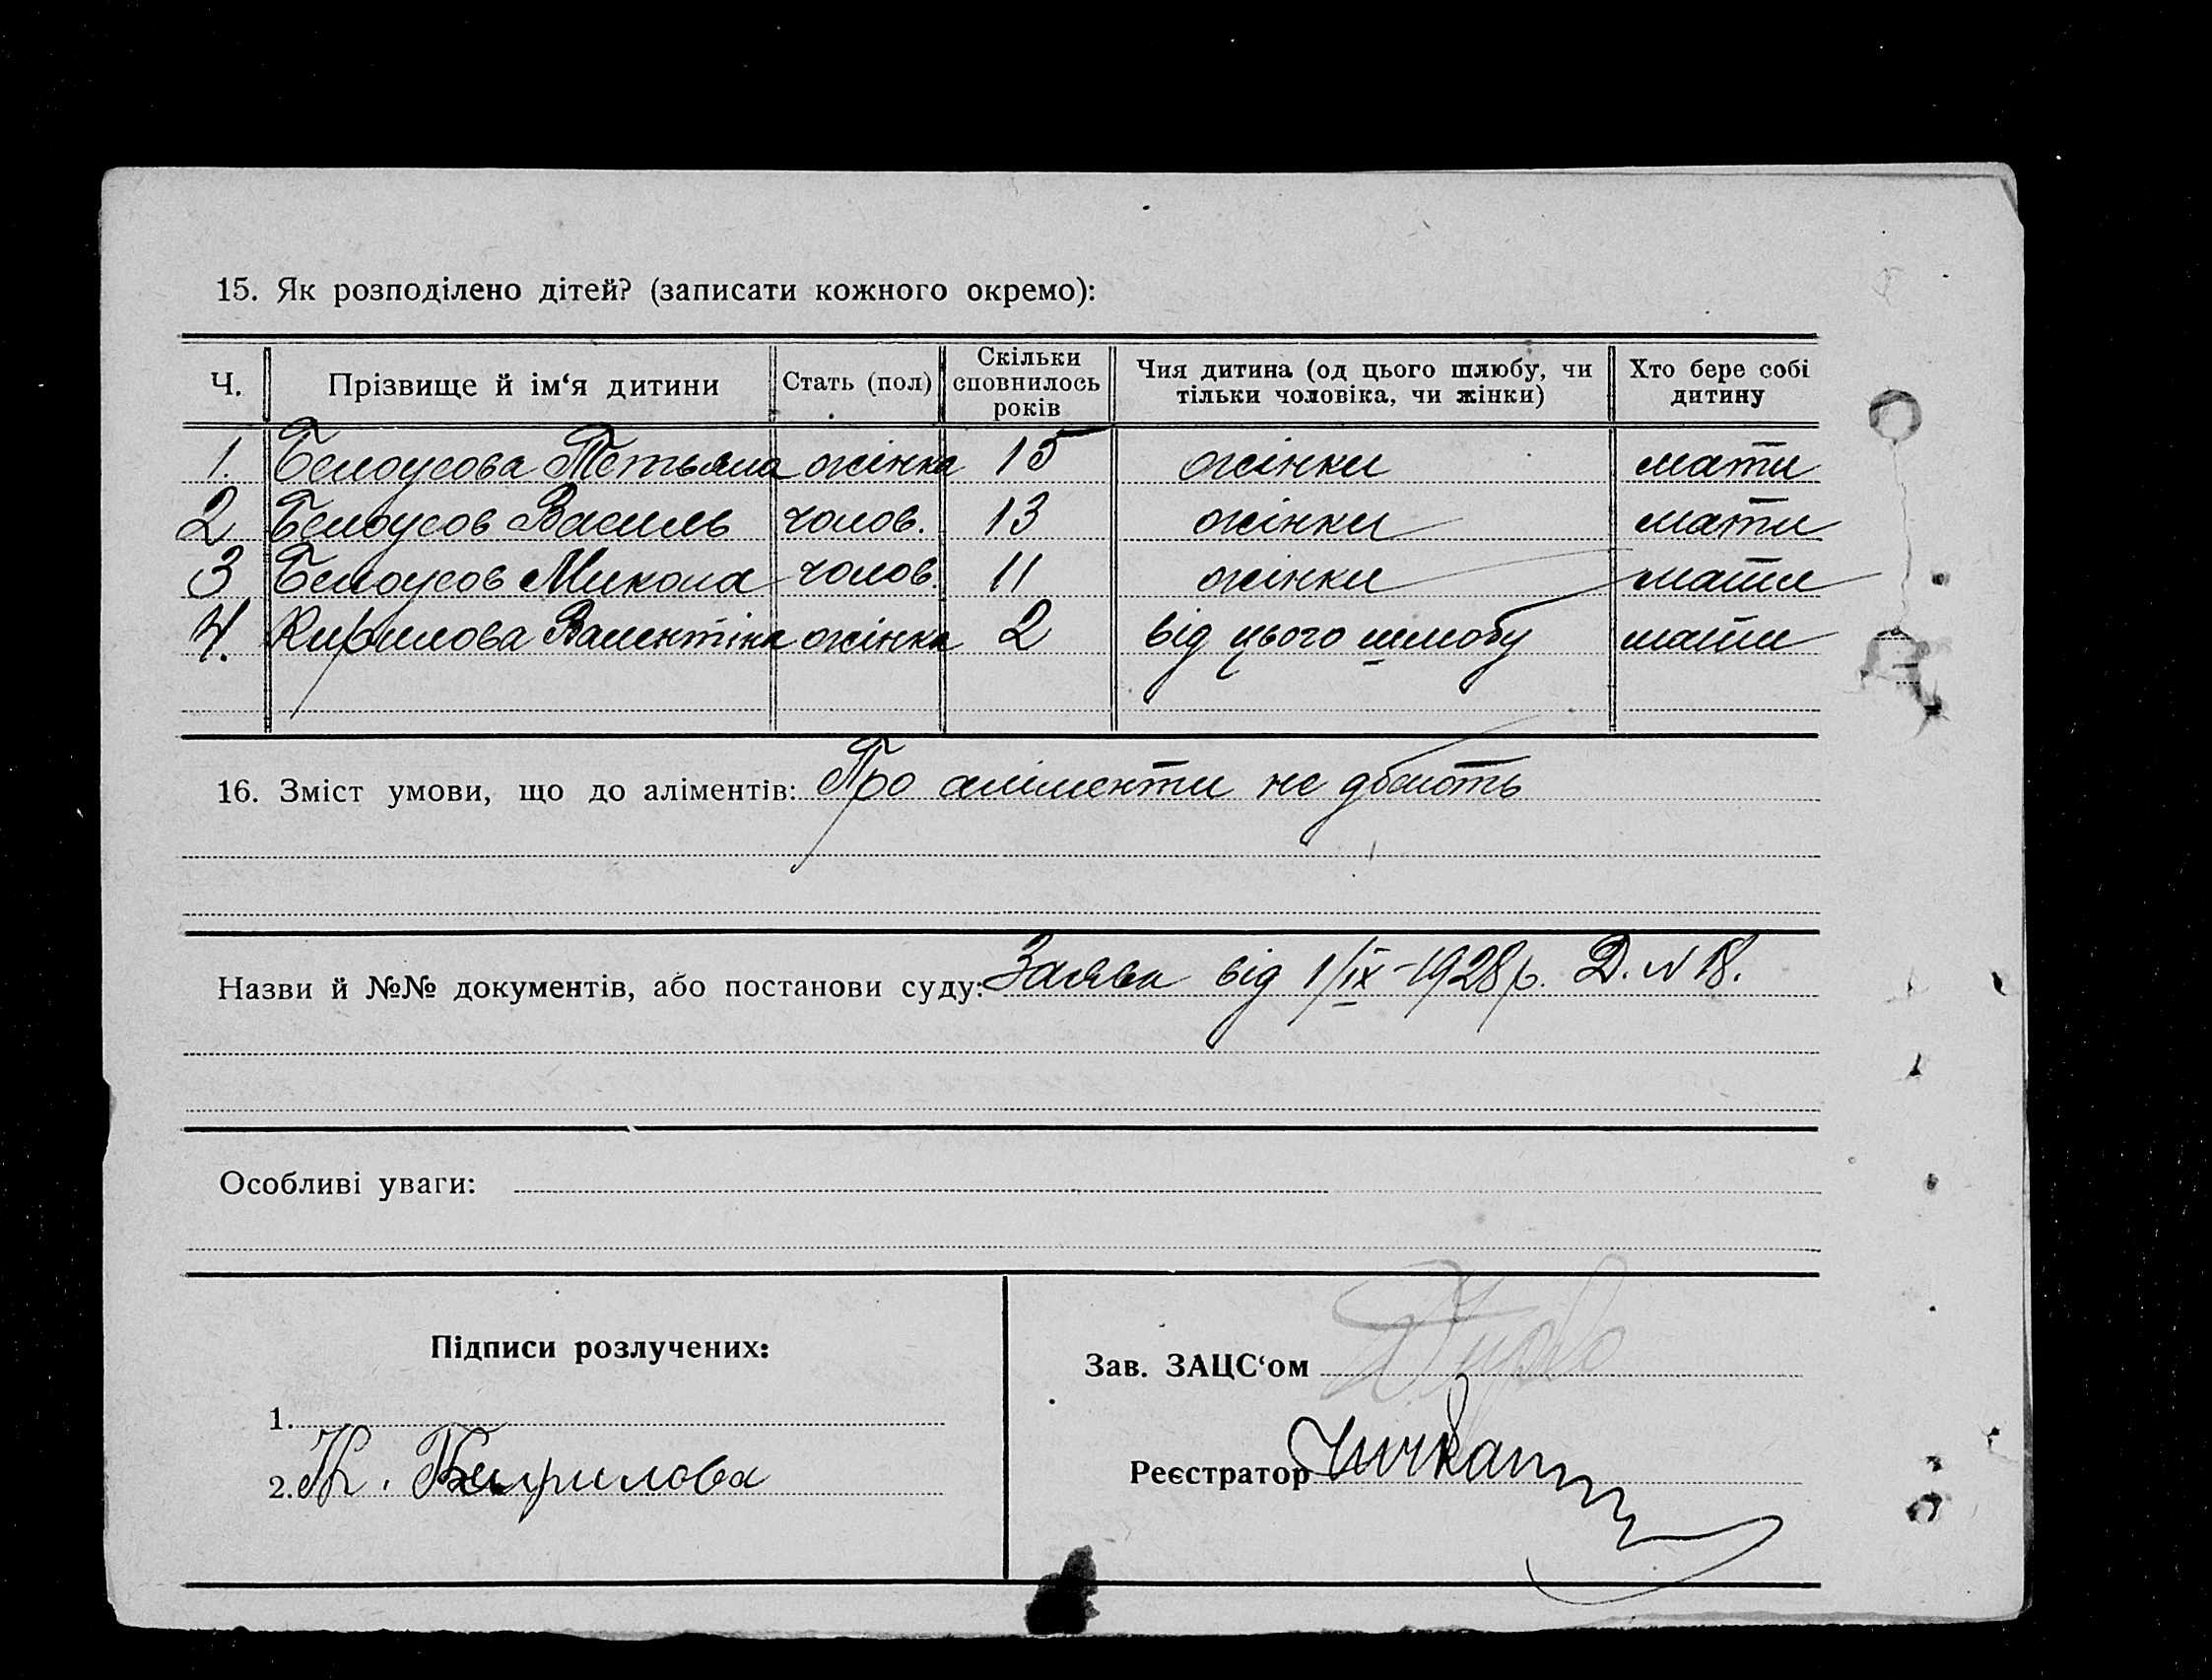 15. Як розподілено дітей? (записати кожного окремо):
Ч. Прізвище й ім‘я дитини Стать (пол) Скільки сповнилось років Чия дитина (од цього шлюбу, чи тільки чоловіка, чи жінки) Хто бере собі дитину
1. Белоусова Тетьяна жінка 15 жінки мати
2 Белоусов Василь чолов. 13 жінки мати
3 Белоусов Микола чолов. 11 жінки мати
4. Кирилова Валентіна жінка 2 від цього шлюбу мати
16. Зміст умови, що до аліментів: Про аліменти не дбають
Назви й №№ документів, або постанови суду: Заява від 1/ІХ-1928р. Д. N 18.
Особливі уваги:
Підписи розлучених:
Зав. ЗАЦС‘ом
1.
2. К. Кирилова
Реєстратор